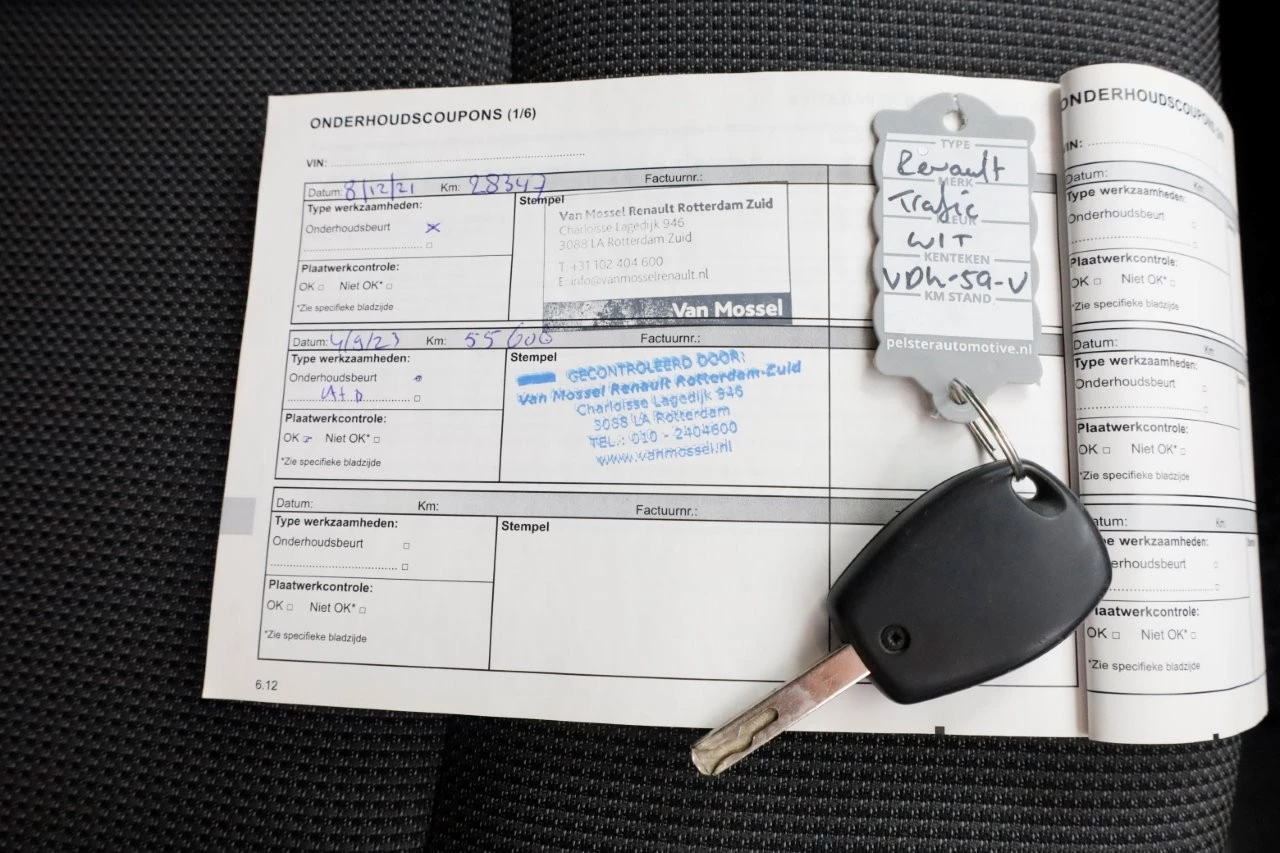 ONDERHOUDSCOUPONS (1/6)
VIN:
Datum: 8/12/21 Km: 28347 Factuurnr.:
Type werkzaamheden:
Onderhoudsbeurt x
Plaatwerkcontrole:
OK □ Niet OK* □
*Zie specifieke bladzijde
Stempel
Van Mossel Renault Rotterdam Zuid
Charloisse Lagedijk 946
3088 LA Rotterdam Zuid
T: +31 102 404 600
E: info@vanmosselrenault.nl
Van Mossel
Datum: 4/9/23 Km: 55 600 Factuurnr.:
Type werkzaamheden:
Onderhoudsbeurt
□
Plaatwerkcontrole:
OK Niet OK* □
*Zie specifieke bladzijde
Stempel
GECONTROLEERD DOOR:
Van Mossel Renault Rotterdam-Zuid
Charloisse Lagedijk 946
3088 LA Rotterdam
TEL.: 010 - 2404600
www.vanmossel.nl
Datum: Km: Factuurnr.:
Type werkzaamheden:
Onderhoudsbeurt □
□
Plaatwerkcontrole:
OK □ Niet OK* □
*Zie specifieke bladzijde
Stempel
6.12
TYPE
Renault
MERK
Trafic
KLEUR
WIT
KENTEKEN
VDK-59-V
KM STAND
pelsterautomotive.nl
ONDERHOUDSCOUPONS
VIN:
Datum: Km:
Type werkzaamheden:
Onderhoudsbeurt □
□
Plaatwerkcontrole:
OK □ Niet OK* □
*Zie specifieke bladzijde
Datum: Km:
Type werkzaamheden:
Onderhoudsbeurt □
□
Plaatwerkcontrole:
OK □ Niet OK* □
*Zie specifieke bladzijde
atum: Km:
pe werkzaamheden:
erhoudsbeurt □
□
laatwerkcontrole:
OK □ Niet OK* □
*Zie specifieke bladzijde